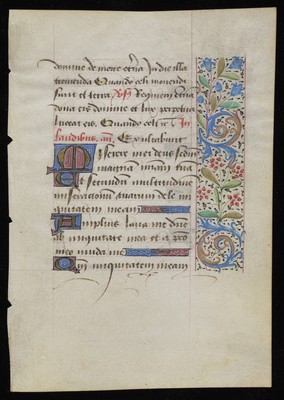 domine de morte etña In die illa
tremenda Quando celi movendi
sunt et terra. Vs Requiem eternā
dona eis domine et lux perpetua
luceat eis. Quando celi
laudibus. an. Exultabunt
Miserere mei deus secun
magnam mam tua
Et secundū multitudine
miserationū tuarum dele
quitatem meam
Amplius lava me
ab iniquitate mea et a
meo munda me
Qm iniquitatem meam